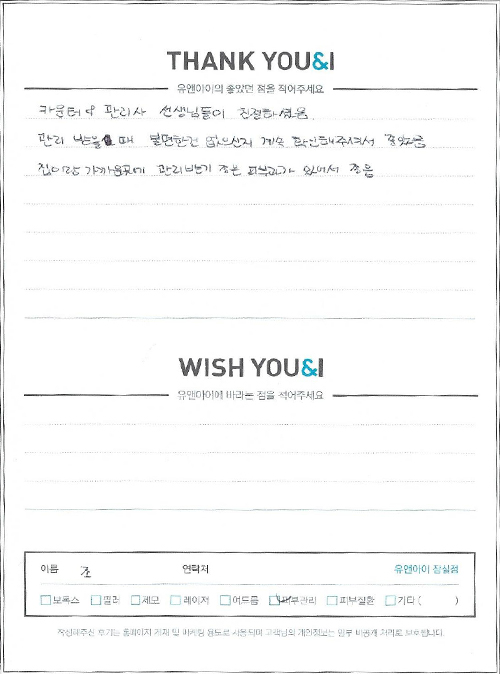 THANK YOU&I
유앤아이의 좋았던 점을 적어주세요
카운터와 관리사 선생님들이 친절하셨음.
관리 받을 때 불편한건 없으신지 계속 확인해주셔서 좋았음
집이랑 가까운곳에 관리받기 좋은 피부과가 있어서 좋음
WISH YOU&I
유앤아이에 바라는 점을 적어주세요
이름 조 연락처 유앤아이 잠실점
보톡스 필러 제모 레이저 여드름 피부관리 피부질환 기타 ( )
작성해주신 후기는 홈페이지 게재 및 마케팅 용도로 사용되며 고객님의 개인정보는 일부 비공개 처리로 보호됩니다.